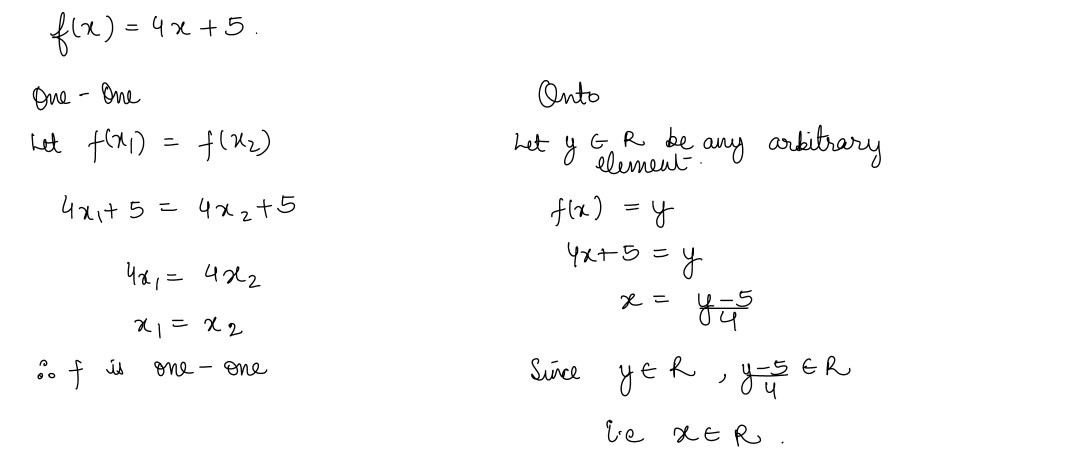 f(x) = 4x + 5.
One - One
Let f(x₁) = f(x₂)
4x₁ + 5 = 4x₂ + 5
4x₁ = 4x₂
x₁ = x₂
∴ f is one - one
Onto
Let y ∈ R be any arbitrary
element.
f(x) = y
4x + 5 = y
x = (y-5)/4
Since y ∈ R , (y-5)/4 ∈ R
i.e x ∈ R .